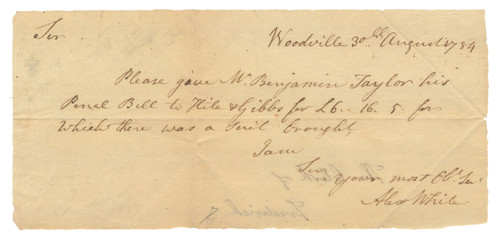 Sir Woodville 30th August 1784
Please give Mr. Benjamin Taylor his
Penal Bill to Hite & Gibbs for £6.. 16.. 5.. for
which there was a Suit brought
I am
Sir
your most Obt. Sert.
Alex White